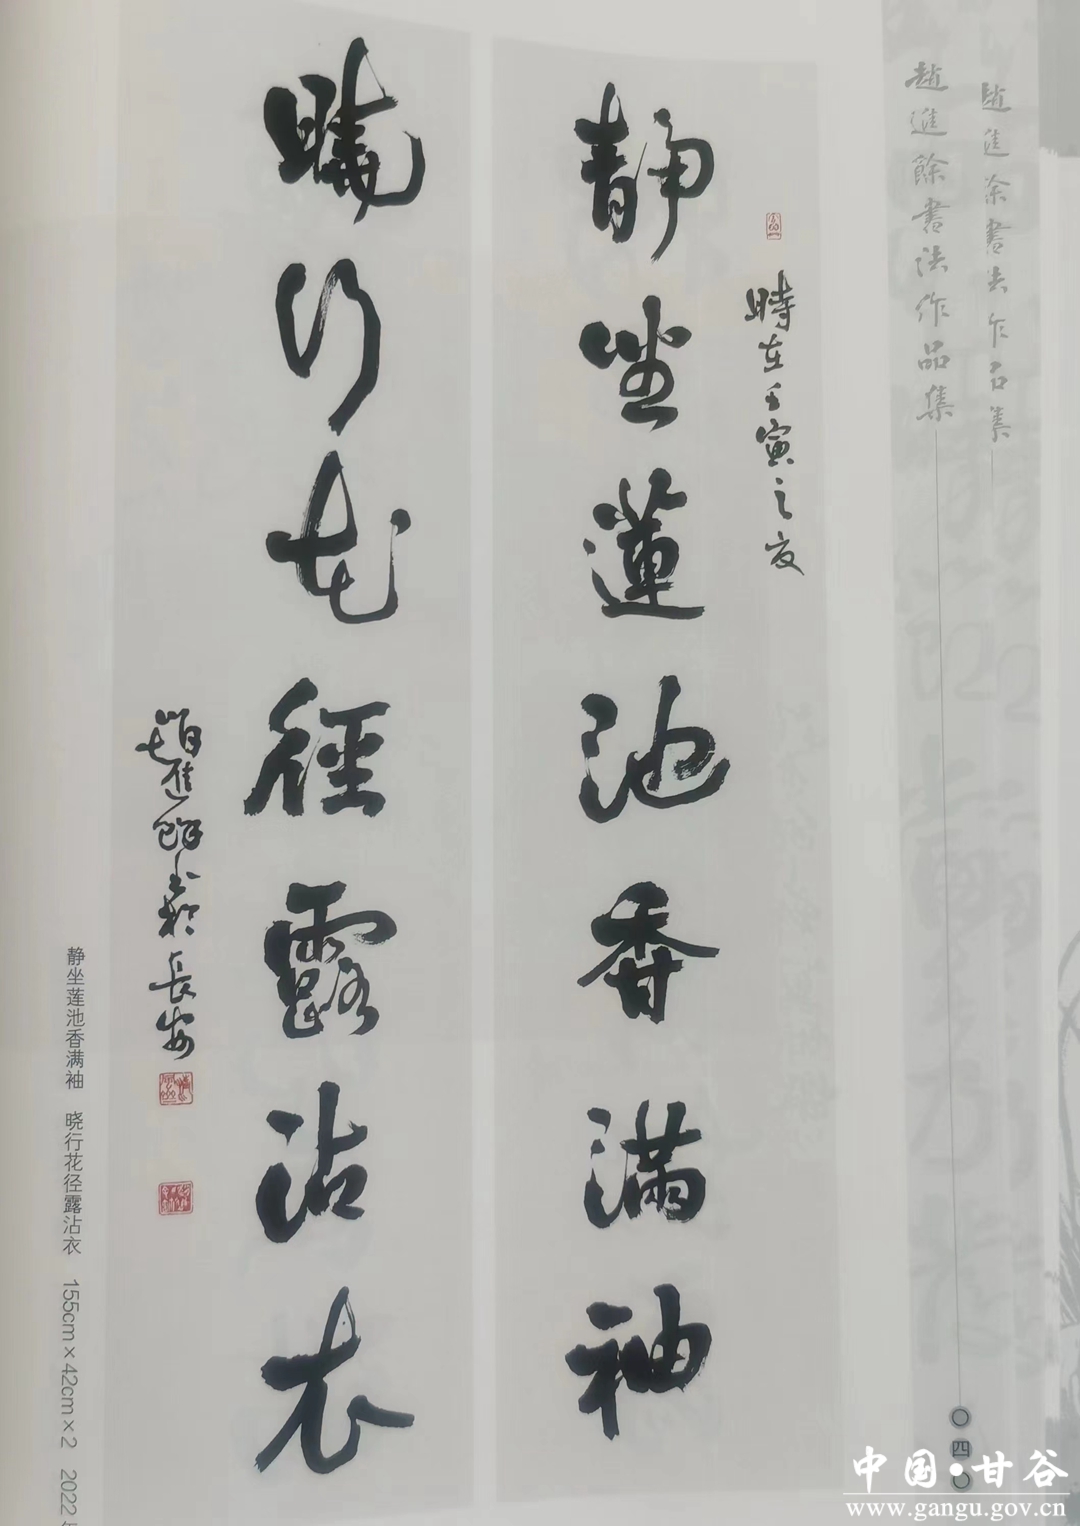 趙進餘書法作品集
時在壬寅之夜
靜坐蓮池香滿袖
曉行花徑露沾衣
趙進餘書於長安
静坐莲池香满袖 晓行花径露沾衣 155cm×42cm×2 2022年
〇四〇
中国·甘谷
www.gangu.gov.cn